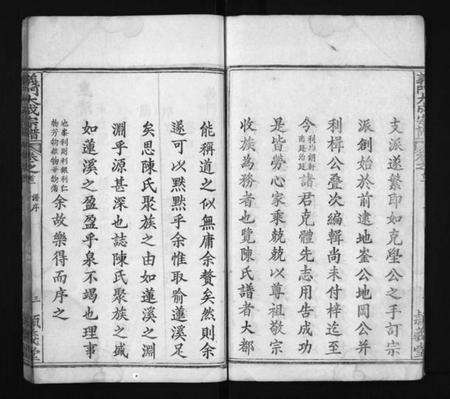 支派遂繁印如克壂公之手訂宗
派創始於前逮地崟公地岡公并
利楫公叠次編輯尚未付梓迄至
今
諸君克體先志用告成功
是皆勞心家乘兢兢以尊祖敬宗
收族為務者也覽陳氏譜者大都
能稱道之似無庸余贅矣然則余
遂可以默默乎余惟取喻蓮溪足
矣思陳氏聚族之由如蓮溪之淵
淵乎源甚深也誌陳氏聚族之盛
如蓮溪之盈盈乎泉不竭也理事
余故樂得而序之
義門大成宗譜
卷之
譜序
三
穎義堂